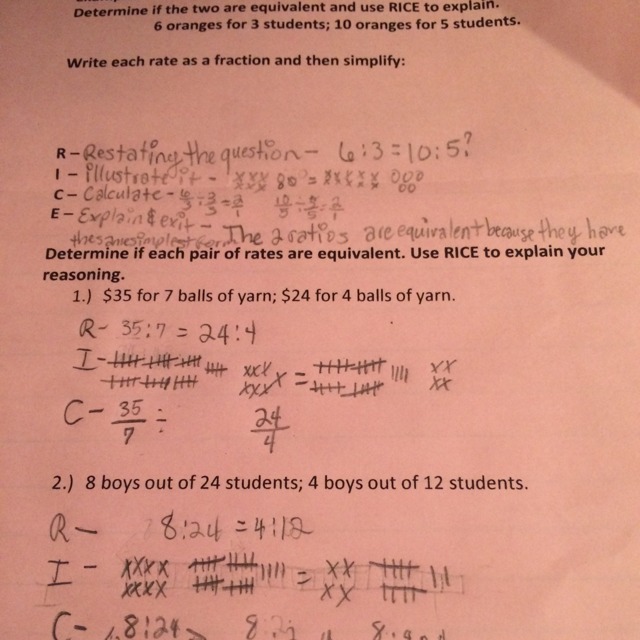 Determine if the two are equivalent and use RICE to explain.
6 oranges for 3 students; 10 oranges for 5 students.
Write each rate as a fraction and then simplify:
R - Restating the question - 6:3 = 10:5?
I - illustrate it -
C - Calculate - 6/3 ÷ 3/3 = 2/1 10/5 ÷ 5/5 = 2/1
E - Explain & exit - The 2 ratios are equivalent because they have
the same simplest form.
Determine if each pair of rates are equivalent. Use RICE to explain your
reasoning.
1.) $35 for 7 balls of yarn; $24 for 4 balls of yarn.
R- 35:7 = 24:4
I-
C- 35/7 ÷ 24/4
2.) 8 boys out of 24 students; 4 boys out of 12 students.
R- 8:24 = 4:12
I -
C- 8:24